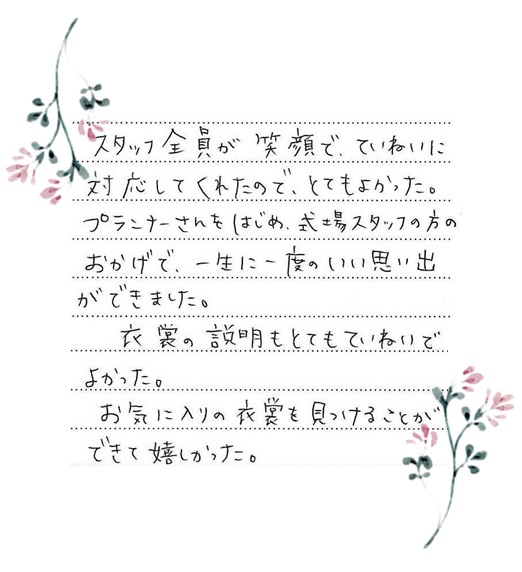 スタッフ全員が笑顔で、ていねいに
対応してくれたので、とてもよかった。
プランナーさんをはじめ、式場スタッフの方の
おかげで、一生に一度のいい思い出
ができました。
衣裳の説明もとてもていねいで
よかった。
お気に入りの衣裳を見つけることが
できて嬉しかった。